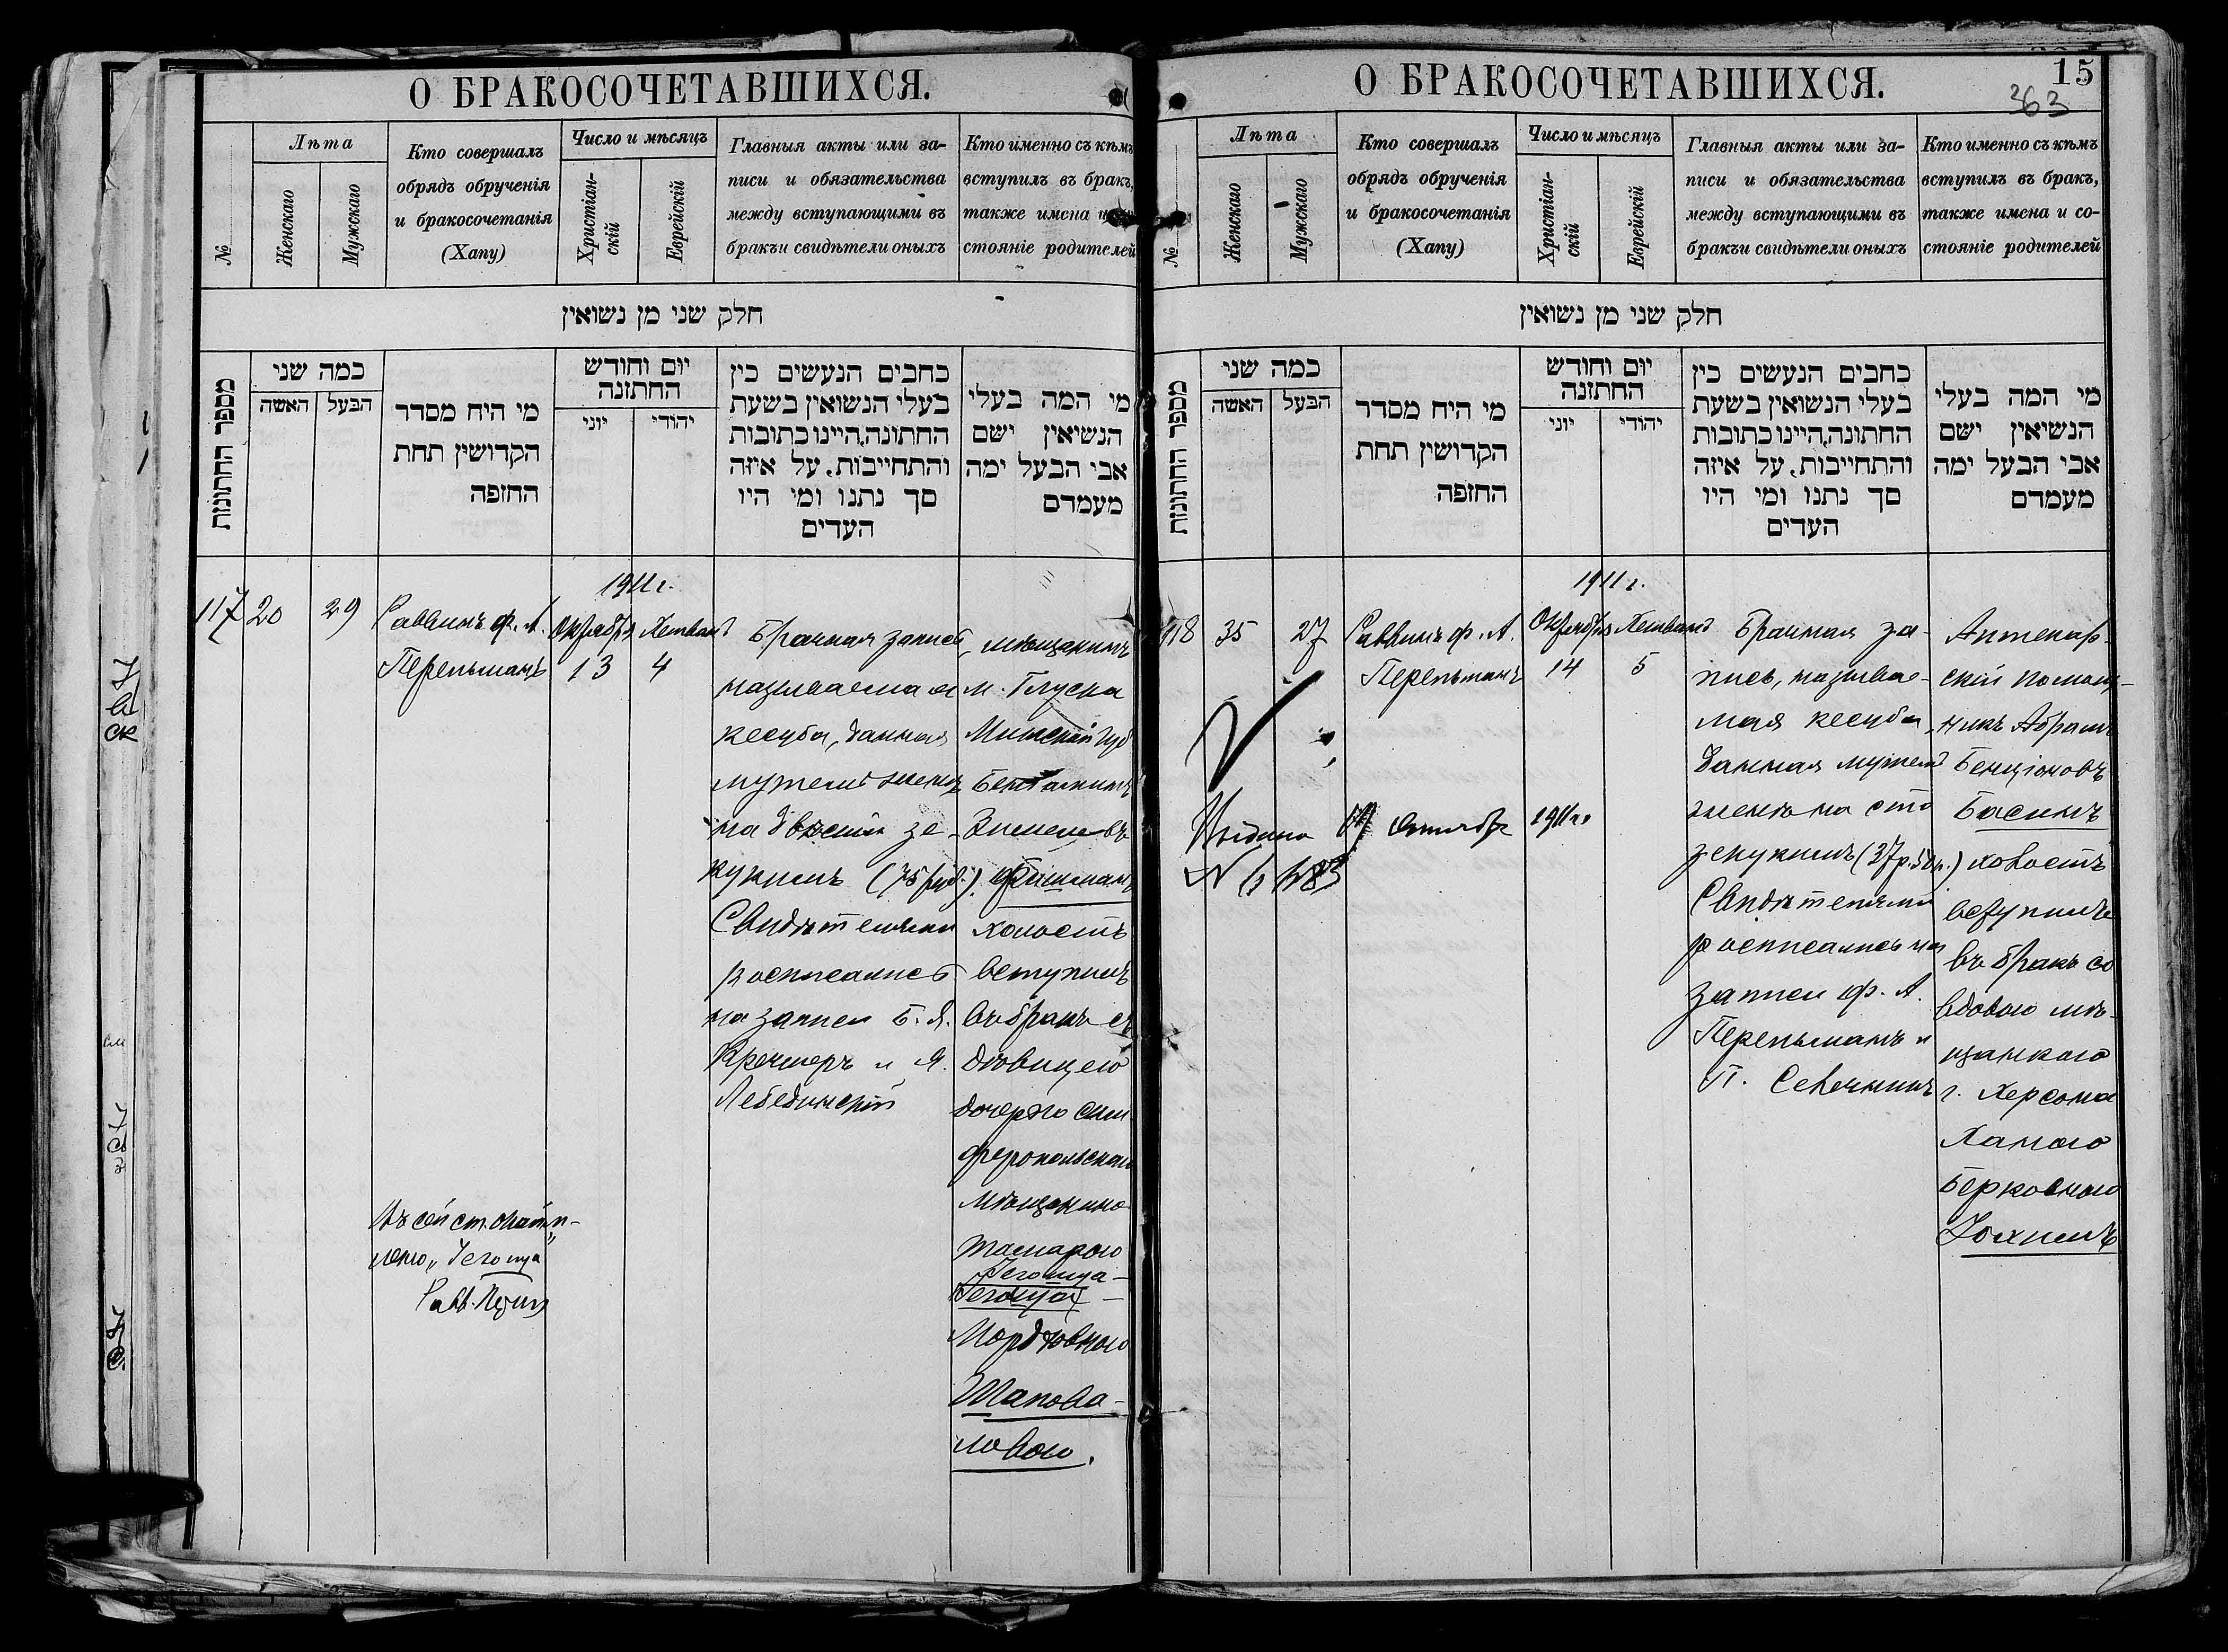 О БРАКОСОЧЕТАВШИХСЯ.
№
Лѣта
Женскаго
Мужскаго
Кто совершалъ
обрядъ обрученія
и бракосочетанія
(Хапу)
Число и мѣсяцъ
Христіан-
скій
Еврейскій
Главныя акты или за-
писи и обязательства
между вступающими въ
бракъи свидѣтели оныхъ
Кто именно съ кѣмъ
вступилъ въ бракъ,
также имена
стояніе родителей
חלק שני מן נשואין
מספר החתונות
כמה שני
האשה
הבעל
מי היח מסדר
הקדושין תחת
החזפה
יום וחודש
החתזנה
יוני
יהודי
כחבים הנעשים כין
בעלי הנשואין בשעת
החתונה, היינו כתובות
והתחייבות. על איזה
סך נתנו ומי היו
העדים
מי המה בעלי
הנשיאין ישם
אבי הבעל ימה
מעמדם
117
20
29
Раввинъ Ф. А.
Перельманъ
1911 г.
Октября
13
Хешванъ
4
Брачная запись,
называемая
кесуба, данная
мужемъ женѣ
на двѣсти зе-
кукимъ (75 руб.).
Свидѣтелями
росписались
на записи Б. Я.
Кречмеръ и Я.
Лебединскій
мѣщанинъ
м. Глуска
Минской губ
Бентамимъ
Фишманъ
холостъ
вступилъ
въ бракъ съ
дѣвицею
дочерью сим
феропольскаго
мѣщанина
Тамарою
Мордковною
Шапова-
ловою.
Въ сей ст.
Равв.
О БРАКОСОЧЕТАВШИХСЯ.
15
363
№
Лѣта
Женскаго
Мужскаго
Кто совершалъ
обрядъ обрученія
и бракосочетанія
(Хапу)
Число и мѣсяцъ
Христіан-
скій
Еврейскій
Главныя акты или за-
писи и обязательства
между вступающими въ
бракъи свидѣтели оныхъ
Кто именно съ кѣмъ
вступилъ въ бракъ,
также имена и со-
стояніе родителей
חלק שני מן נשואין
מספר החתונות
כמה שני
האשה
הבעל
מי היח מסדר
הקדושין תחת
החזפה
יום וחודש
החתזנה
יוני
יהודי
כחבים הנעשים כין
בעלי הנשואין בשעת
החתונה, היינו כתובות
והתחייבות. על איזה
סך נתנו ומי היו
העדים
מי המה בעלי
הנשיאין ישם
אבי הבעל ימה
מעמדם
118
35
27
Раввинъ Ф. А.
Перельманъ
1911 г.
Октября
14
Хешванъ
5
Брачная за-
пись, называе-
мая кесуба,
данная мужемъ
женѣ на сто
зекукимъ (37 р. 50 к.)
Свидѣтелями
росписались на
записи Ф. А.
Перельманъ и
П.
Аптекар-
скій помощ-
никъ Абрамъ
Бенціоновъ
Басинъ
холостъ
вступилъ
въ бракъ со
вдовою мѣ-
щанкою
г. Херсона
Ханою
Берковною
Выдана
1911 г.